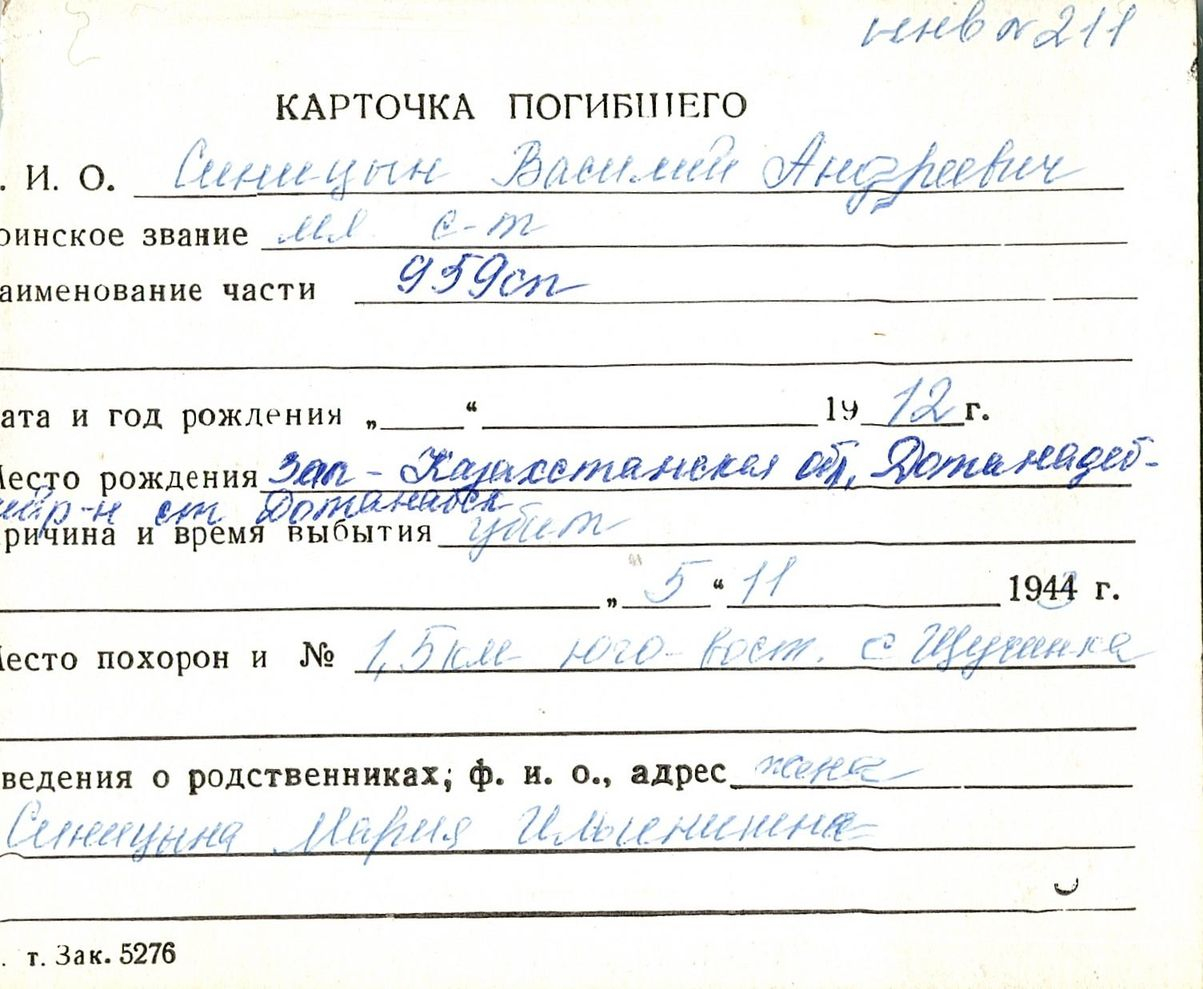 инв № 211
КАРТОЧКА ПОГИБШЕГО
. И. О. Синицын Василий Андреевич
оинское звание мл. с-т
аименование части 959сп
ата и год рождения „ “ 19 12 г.
есто рождения Зап - Казахстанская обл, Дотанадеб-
р-н ст. Дотанабск
ричина и время выбытия убит
„ 5 “ 11 1943 г.
есто похорон и № 1,5 км юго-вост. с Щучинка
ведения о родственниках; ф. и. о., адрес жена
Синицына Мария
. т. Зак. 5276